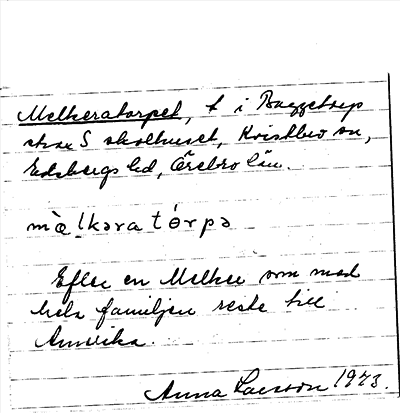 Melkeratorpet, t i Baggetorp
strax S skolhuset, Kvistbro sn,
Edsbergs hd, Örebro län.
mæ̀lkəra tórpə
Efter en Melker som med
hela familjen reste till
Amerika.
Anna Larsson 1973.